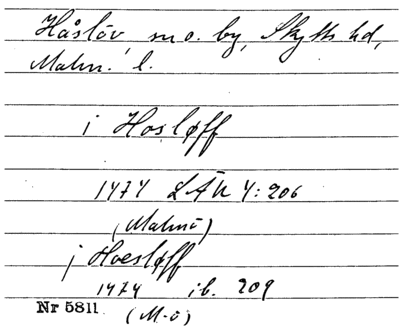 Håslöv sn o. by, Skytts hd,
Malm. l.
i Hosløff
1474 LÄU 4:206
(Malmö)
j Hoesløff
1474 ib. 209
Nr 5811 (M-ö)